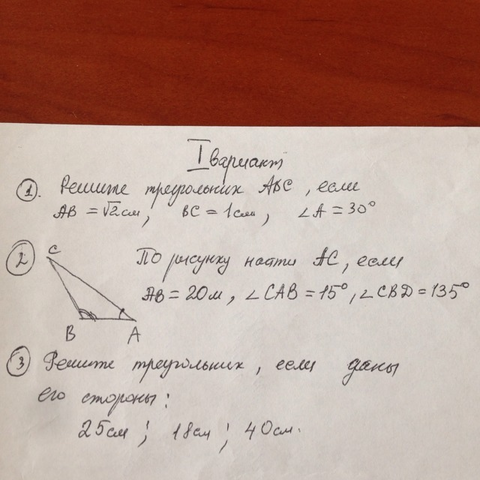 I вариант
1. Решите треугольник ABC, если
AB = √2 см, BC = 1 см, ∠A = 30°
2 По рисунку найти AC, если
AB = 20 м, ∠CAB = 15°, ∠CBD = 135°
C
B A
3 Решите треугольник, если даны
его стороны:
25 см; 18 см; 40 см.